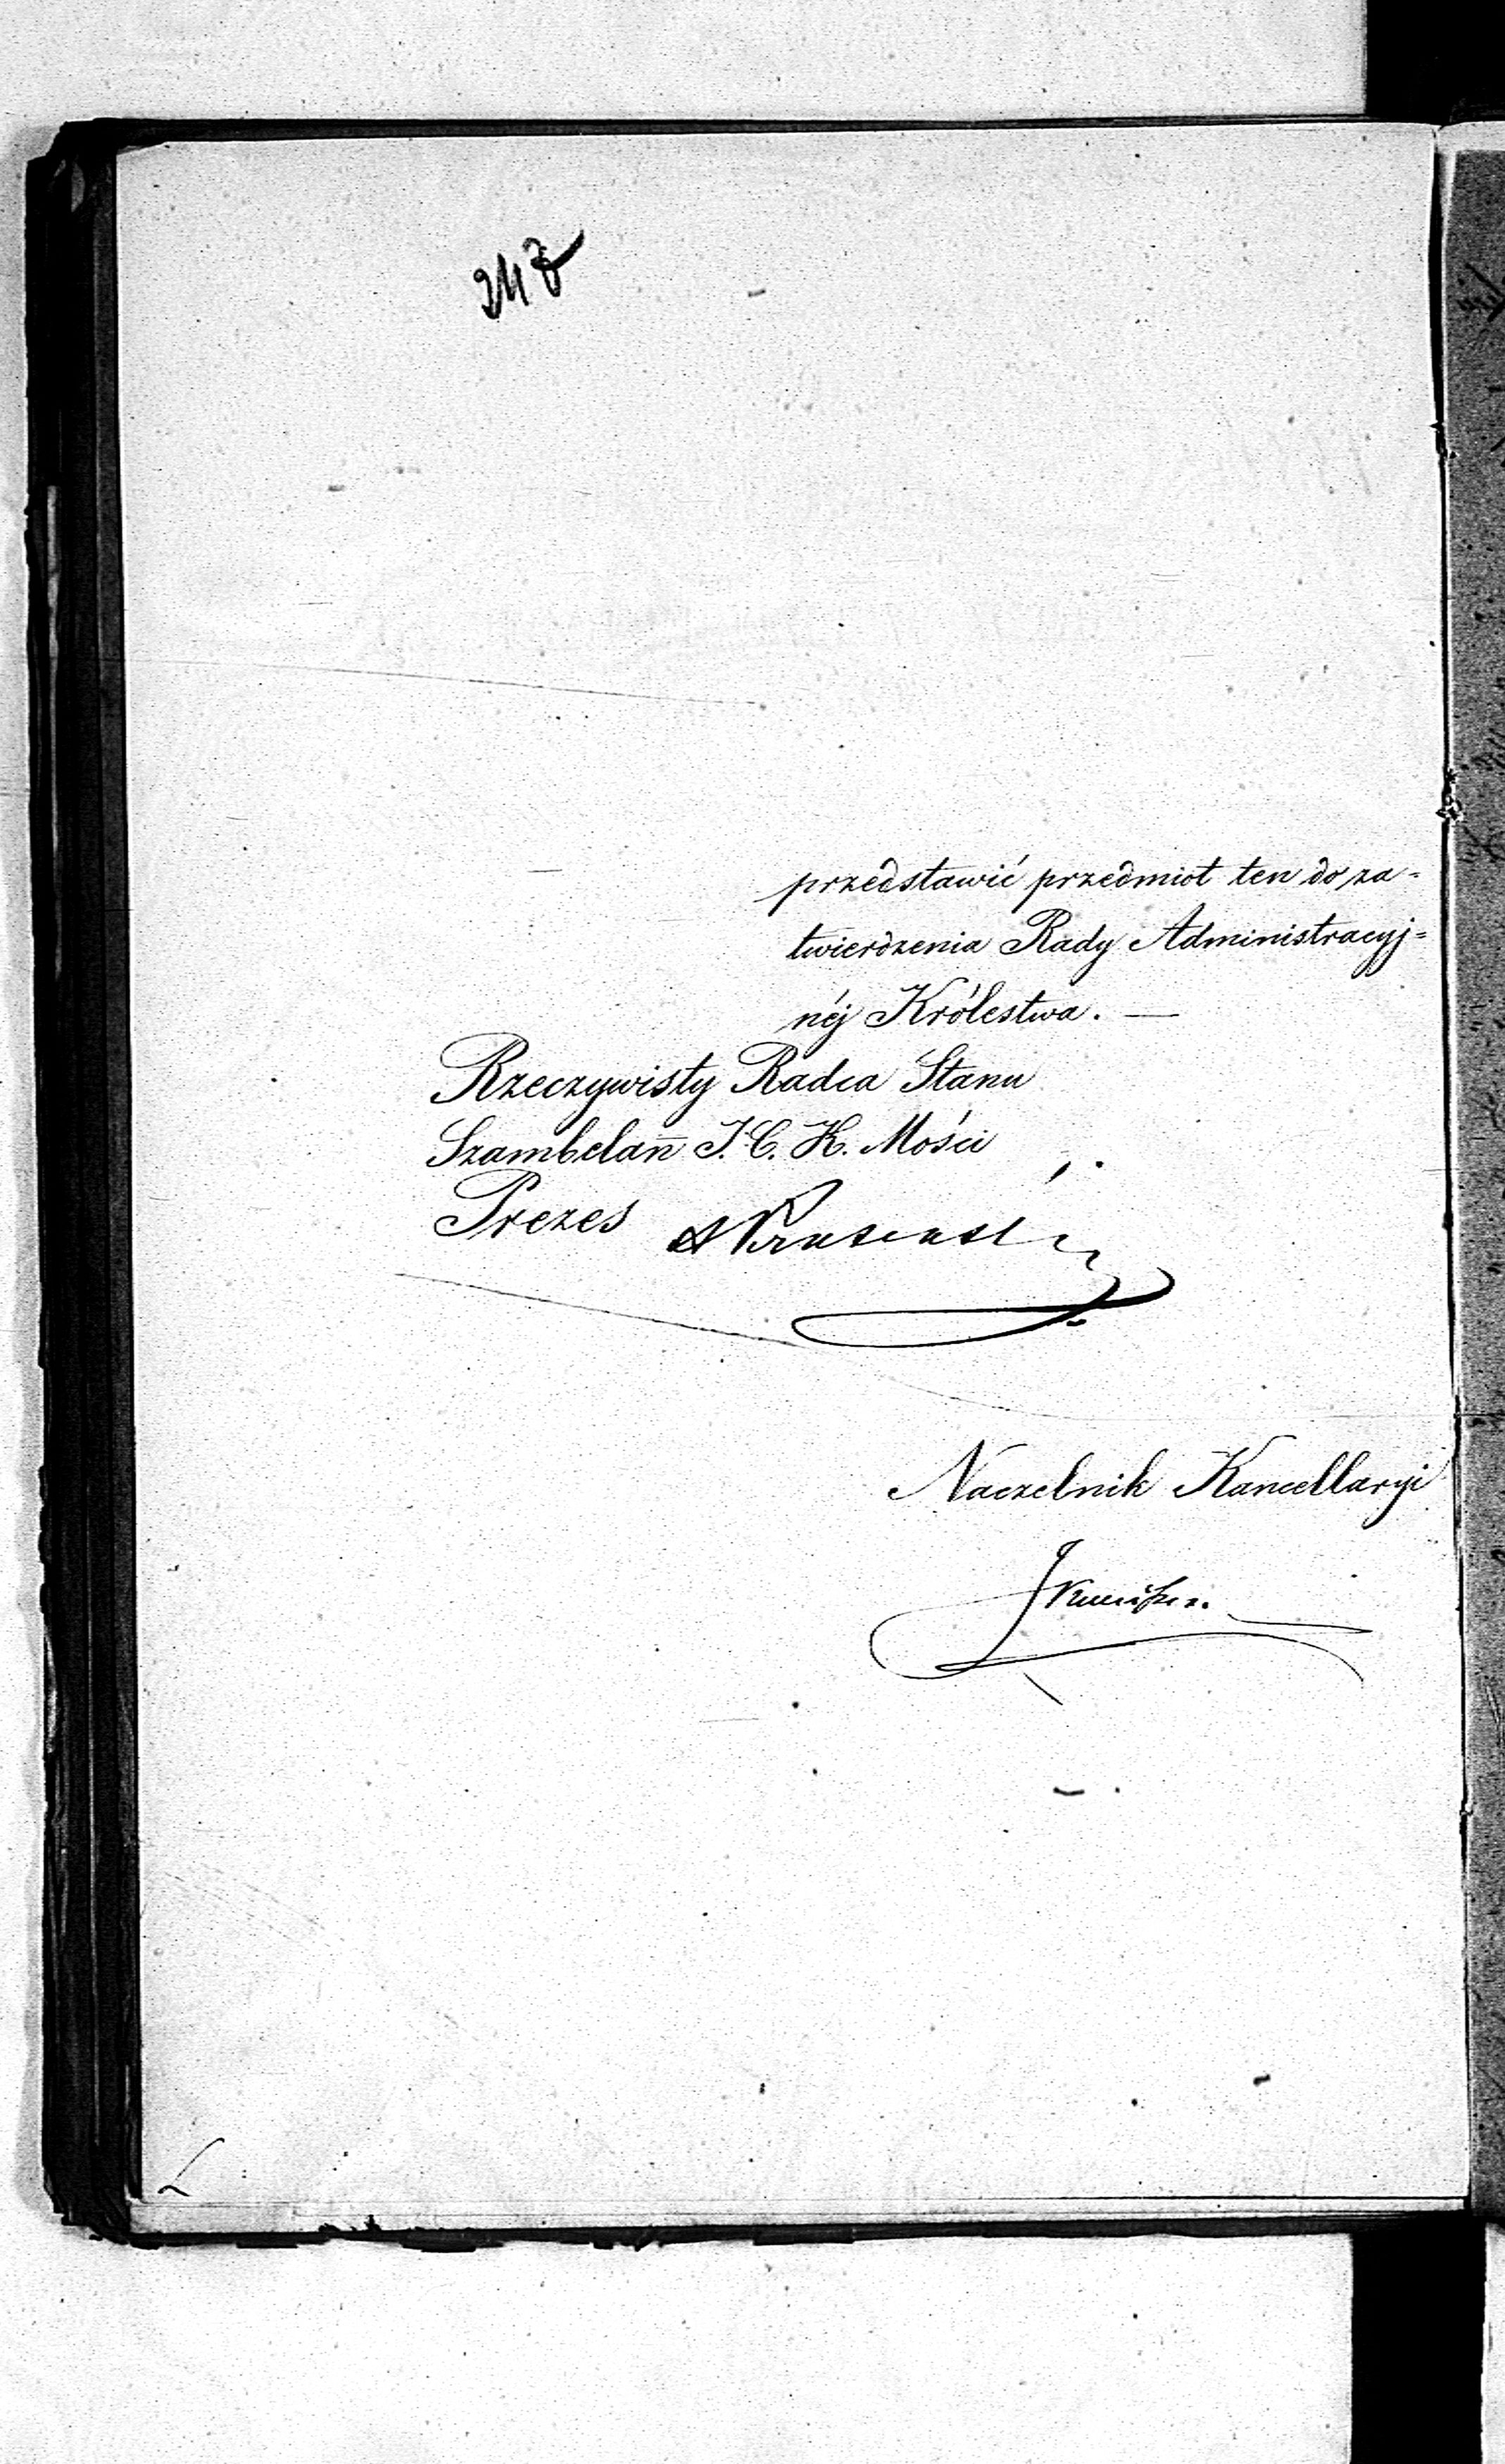 247
przedstawić przedmiot ten do za=
twierdzenia Rady Administracyj=
néj Królestwa. —
Rzeczywisty Radca Stanu
Szambelan̄ J. C. K. Mości
Prezes
Naczelnik Kancellaryi